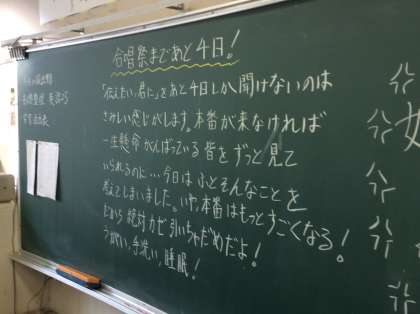 合唱祭まであと4日!
「伝えたい、君に」をあと4日しか聞けないのは
さみしい感じがします。本番が来なければ
一生懸命がんばっている皆をずっと見て
いられるのに…今日はふとそんなことを
考えてしまいました。いや、本番はもっとすごくなる!
だから絶対カゼ引いちゃだめだよ!
うがい,手洗い,睡眠!